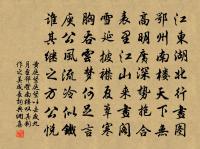 江東湖北行畫圖
鄂州南樓天下無
高明廣深勢抱合
表裏江山來畫閣
雪筵披襟夏簟寒
胸吞雲夢何足言
庾公風流冷似鐵
誰其繼之方公悅